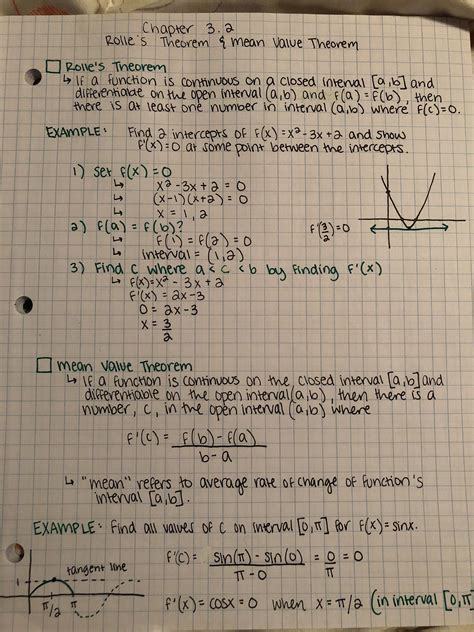 Chapter 3.2
Rolle's Theorem & Mean Value Theorem
Rolle's Theorem
↳ If a function is continuous on a closed interval [a,b] and
differentiable on the open interval (a,b) and f(a) = f(b), then
there is at least one number in interval (a,b) where F(c)=0.
EXAMPLE: Find 2 intercepts of f(x) = x² - 3x + 2 and show
f'(x) = 0 at some point between the intercepts.
1) Set f(x) = 0
↳ x² - 3x + 2 = 0
↳ (x-1)(x+2) = 0
↳ x = 1, 2
2) f(a) = f(b)?
↳ f(1) = f(2) = 0
↳ interval = (1,2)
f'(3/2) = 0
3) Find c where a < c < b by finding f'(x)
↳ f(x) = x² - 3x + 2
f'(x) = 2x - 3
0 = 2x - 3
x = 3/2
Mean Value Theorem
↳ If a function is continuous on the closed interval [a,b] and
differentiable on the open interval (a,b), then there is a
number, c, in the open interval (a,b) where
f'(c) = f(b) - f(a) / b - a
↳ "mean" refers to average rate of change of function's
interval [a,b].
EXAMPLE: Find all values of c on interval [0,π] for f(x) = sinx.
tangent line
1
π/2
π
f'(c) = sin(π) - sin(0) / π - 0 = 0/π = 0
f'(x) = cosx = 0 when x = π/2 (in interval [0,π